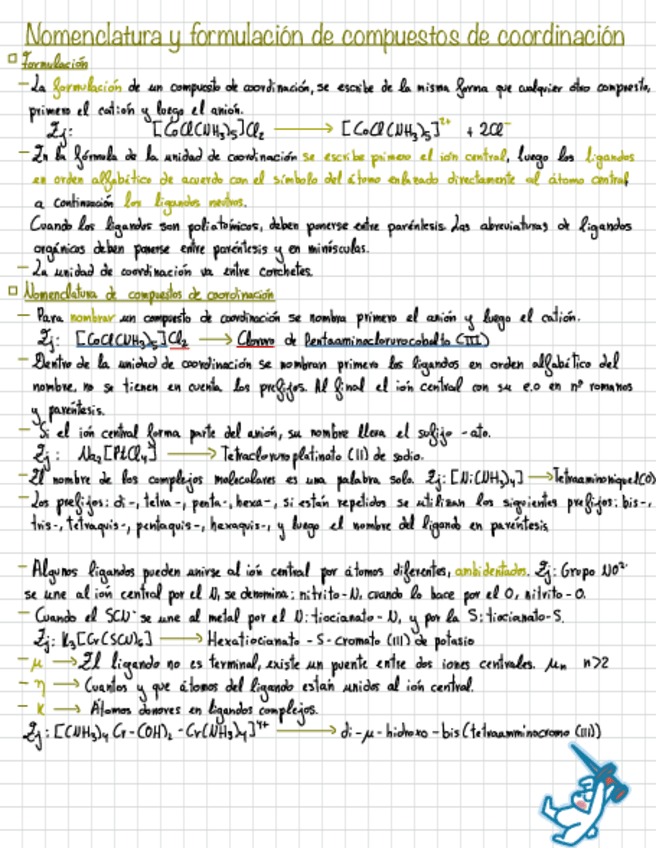 Nomenclatura y formulación de compuestos de coordinación
Formulación
- La formulación de un compuesto de coordinación, se escribe de la misma forma que cualquier otro compuesto,
primero el catión y luego el anión.
Ej: [CoCl(NH₃)₅]Cl₂ ⟶ [CoCl(NH₃)₅]²⁺ + 2Cl⁻
- En la fórmula de la unidad de coordinación se escribe primero el ión central, luego los ligandos
en orden alfabético de acuerdo con el símbolo del átomo enlazado directamente al átomo central,
a continuación los ligandos neutros.
Cuando los ligandos son poliatómicos, deben ponerse entre paréntesis. Las abreviaturas de ligandos
orgánicos deben ponerse entre paréntesis y en minúsculas.
- La unidad de coordinación va entre corchetes.
Nomenclatura de compuestos de coordinación
- Para nombrar un compuesto de coordinación se nombra primero el anión y luego el catión.
Ej: [CoCl(NH₃)₅]Cl₂ ⟶ Cloruro de Pentaaminoclorurocobalto (III)
- Dentro de la unidad de coordinación se nombran primero los ligandos en orden alfabético del
nombre, no se tienen en cuenta los prefijos. Al final el ión central con su e.o en nº romanos
y paréntesis.
- Si el ión central forma parte del anión, su nombre lleva el sufijo -ato.
Ej: Na₂[PtCl₄] ⟶ Tetracloruroplatinato (II) de sodio.
- El nombre de los complejos moleculares es una palabra sola. Ej: [Ni(NH₃)₄] ⟶ Tetraaminoniquel(0)
- Los prefijos: di-, tetra-, penta-, hexa-, si están repetidos se utilizan los siguientes prefijos: bis-,
tris-, tetraquis-, pentaquis-, hexaquis-, y luego el nombre del ligando en paréntesis
- Algunos ligandos pueden unirse al ión central por átomos diferentes, ambidentados. Ej: Grupo NO²⁻
se une al ión central por el N, se denomina: nitrito-N, cuando lo hace por el O, nitrito-O.
- Cuando el SCN⁻ se une al metal por el N: tiocianato-N, y por la S: tiocianato-S.
Ej: K₃[Cr(SCN)₆] ⟶ Hexatiocianato-S-cromato (III) de potasio
- μ ⟶ El ligando no es terminal, existe un puente entre dos iones centrales. μₙ n>2
- η ⟶ Cuantos y que átomos del ligando están unidos al ión central.
- κ ⟶ Átomos donores en ligandos complejos.
Ej: [(NH₃)₄ Cr-(OH)₂-Cr(NH₃)₄]⁴⁺ ⟶ di-μ-hidroxo-bis(tetraamminocromo (III))